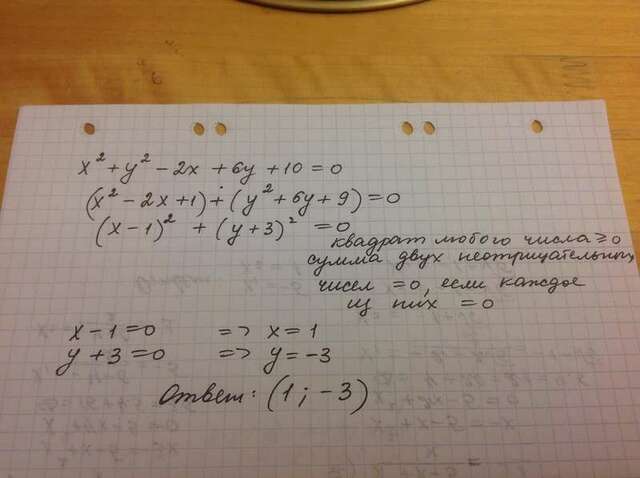 x² + y² - 2x + 6y + 10 = 0
(x² - 2x + 1) + (y² + 6y + 9) = 0
(x - 1)² + (y + 3)² = 0
квадрат любого числа ≥ 0
сумма двух неотрицательных
чисел = 0, если каждое
из них = 0
x - 1 = 0 => x = 1
y + 3 = 0 => y = -3
Ответ: (1; -3)